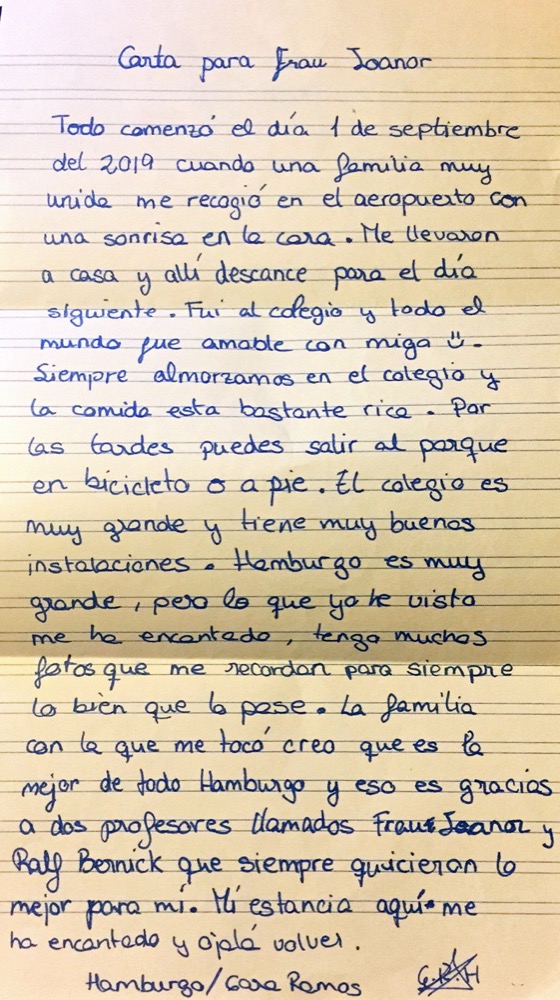 Carta para Frau Joanor
Todo comenzó el día 1 de septiembre
del 2019 cuando una familia muy
unida me recogió en el aeropuerto con
una sonrisa en la cara. Me llevaron
a casa y allí descance para el día
siguiente. Fui al colegio y todo el
mundo fue amable con migo ¨̮.
Siempre almorzamos en el colegio y
la comida esta bastante rica. Por
las tardes puedes salir al parque
en bicicleta o a pie. El colegio es
muy grande y tiene muy buenas
instalaciones. Hamburgo es muy
grande, pero lo que yo he visto
me ha encantado, tengo muchas
fotos que me recordan para siempre
lo bien que lo pase. La familia
con la que me tocó creo que es la
mejor de todo Hamburgo y eso es gracias
a dos profesores llamados Frau Joanor y
Ralf Bernick que siempre quicieron lo
mejor para mí. Mi estancia aquí me
ha encantado y ojalá volver.
Hamburgo/ Ramos